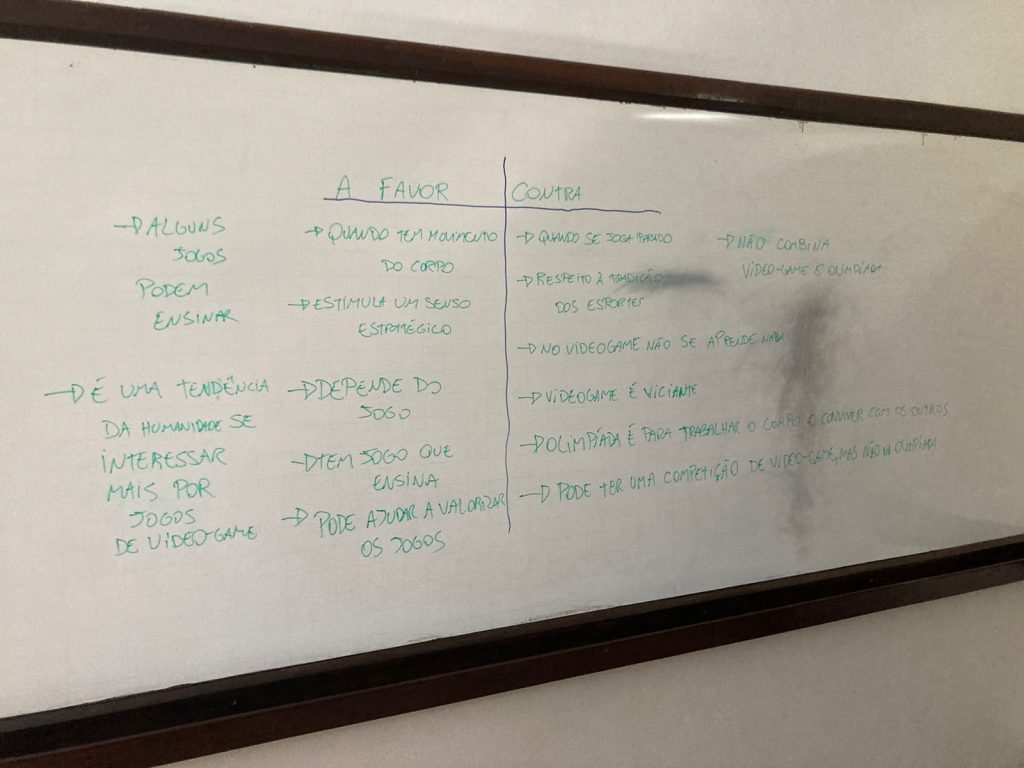 A FAVOR
→ ALGUNS
JOGOS
PODEM
ENSINAR
→ É UMA TENDÊNCIA
DA HUMANIDADE SE
INTERESSAR
MAIS POR
JOGOS
DE VIDEO-GAME
→ QUANDO TEM MOVIMENTO
DO CORPO
→ ESTIMULA UM SENSO
ESTRATÉGICO
→ DEPENDE DO
JOGO
→ TEM JOGO QUE
ENSINA
→ PODE AJUDAR A VALORIZAR
OS JOGOS
CONTRA
→ QUANDO SE JOGA PARADO
→ RESPEITO À TRADIÇÃO
DOS ESPORTES
→ NO VIDEOGAME NÃO SE APRENDE NADA
→ VIDEOGAME É VICIANTE
→ OLIMPÍADA É PARA TRABALHAR O CORPO E CONVIVER COM OS OUTROS
→ PODE TER UMA COMPETIÇÃO DE VIDEO-GAME, MAS NÃO NA OLIMPÍADA
→ NÃO COMBINA
VIDEO-GAME E OLIMPÍADA